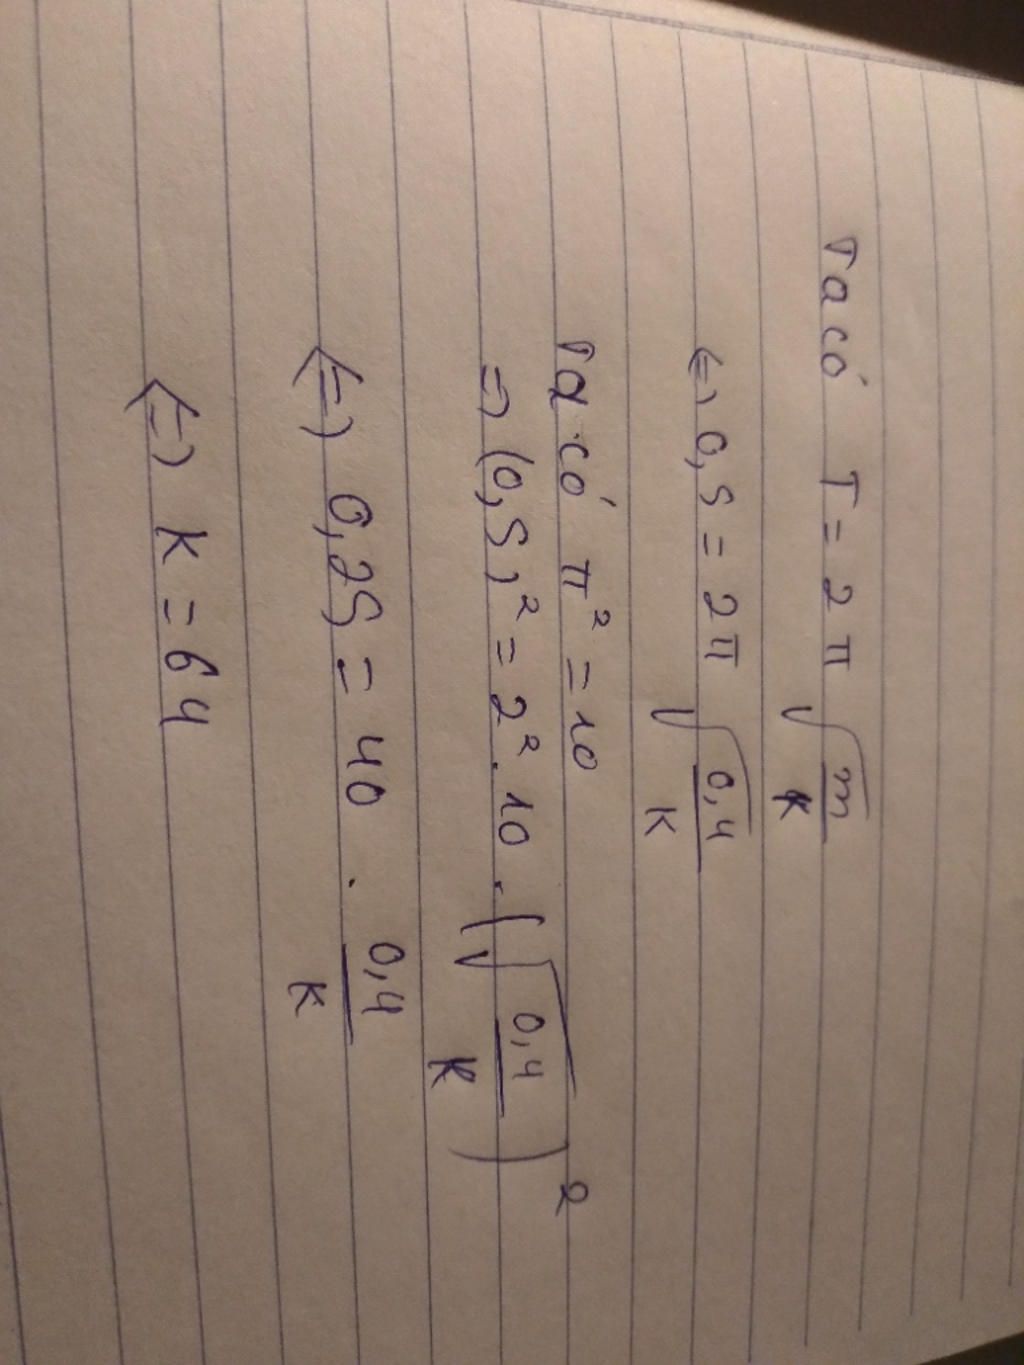 Ta có T = 2π √(m/K)
<=> 0,5 = 2π √(0,4/K)
Ta có π² = 10
=> (0,5)² = 2² . 10 . (√(0,4/K))²
<=> 0,25 = 40 . 0,4/K
<=> K = 64